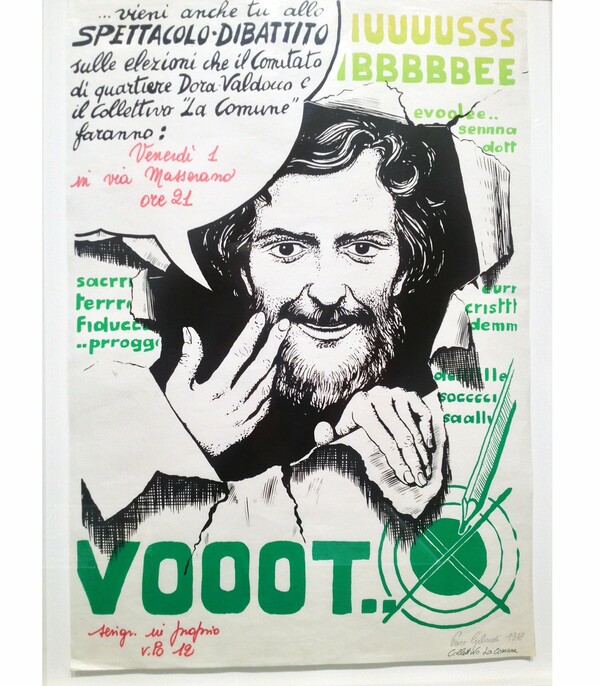 ...vieni anche tu allo
SPETTACOLO-DIBATTITO
sulle elezioni che il Comitato
di quartiere Dora-Valdocco e
il Collettivo "La Comune"
faranno:
Venerdì 1
in via Masserano
ore 21
IUUUUSSS
IBBBBBEE
evoolee..
sennna
dott
sacrrr
terrrr
Fiducc
..prrogg
eurr
cristtt
demm
lle
soccccc
saallv
VOOOT..
serigr. in proprio
v.B 12
1978
Collettivo La Comune